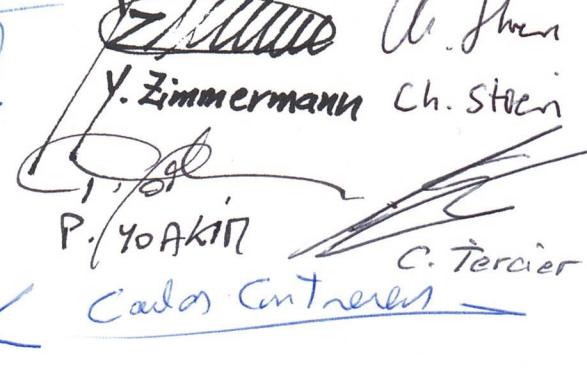 Y. Zimmermann Ch. Stoeri
P. YOAKIM
C. Tercier
Carlos Contreras